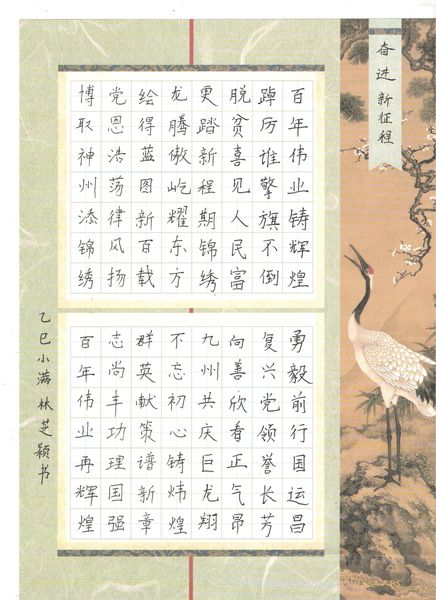 奋进新征程
百年伟业铸辉煌
踔厉谁擎旗不倒
脱贫喜见人民富
更踏新程期锦绣
龙腾傲屹耀东方
绘得蓝图新百载
党恩浩荡律风扬
博取神州添锦绣
勇毅前行国运昌
复兴党领誉长芳
向善欣看正气昂
九州共庆巨龙翔
不忘初心铸炜煌
群英献策谱新章
志尚丰功理国强
百年伟业再辉煌
乙巳小满林芝颖书